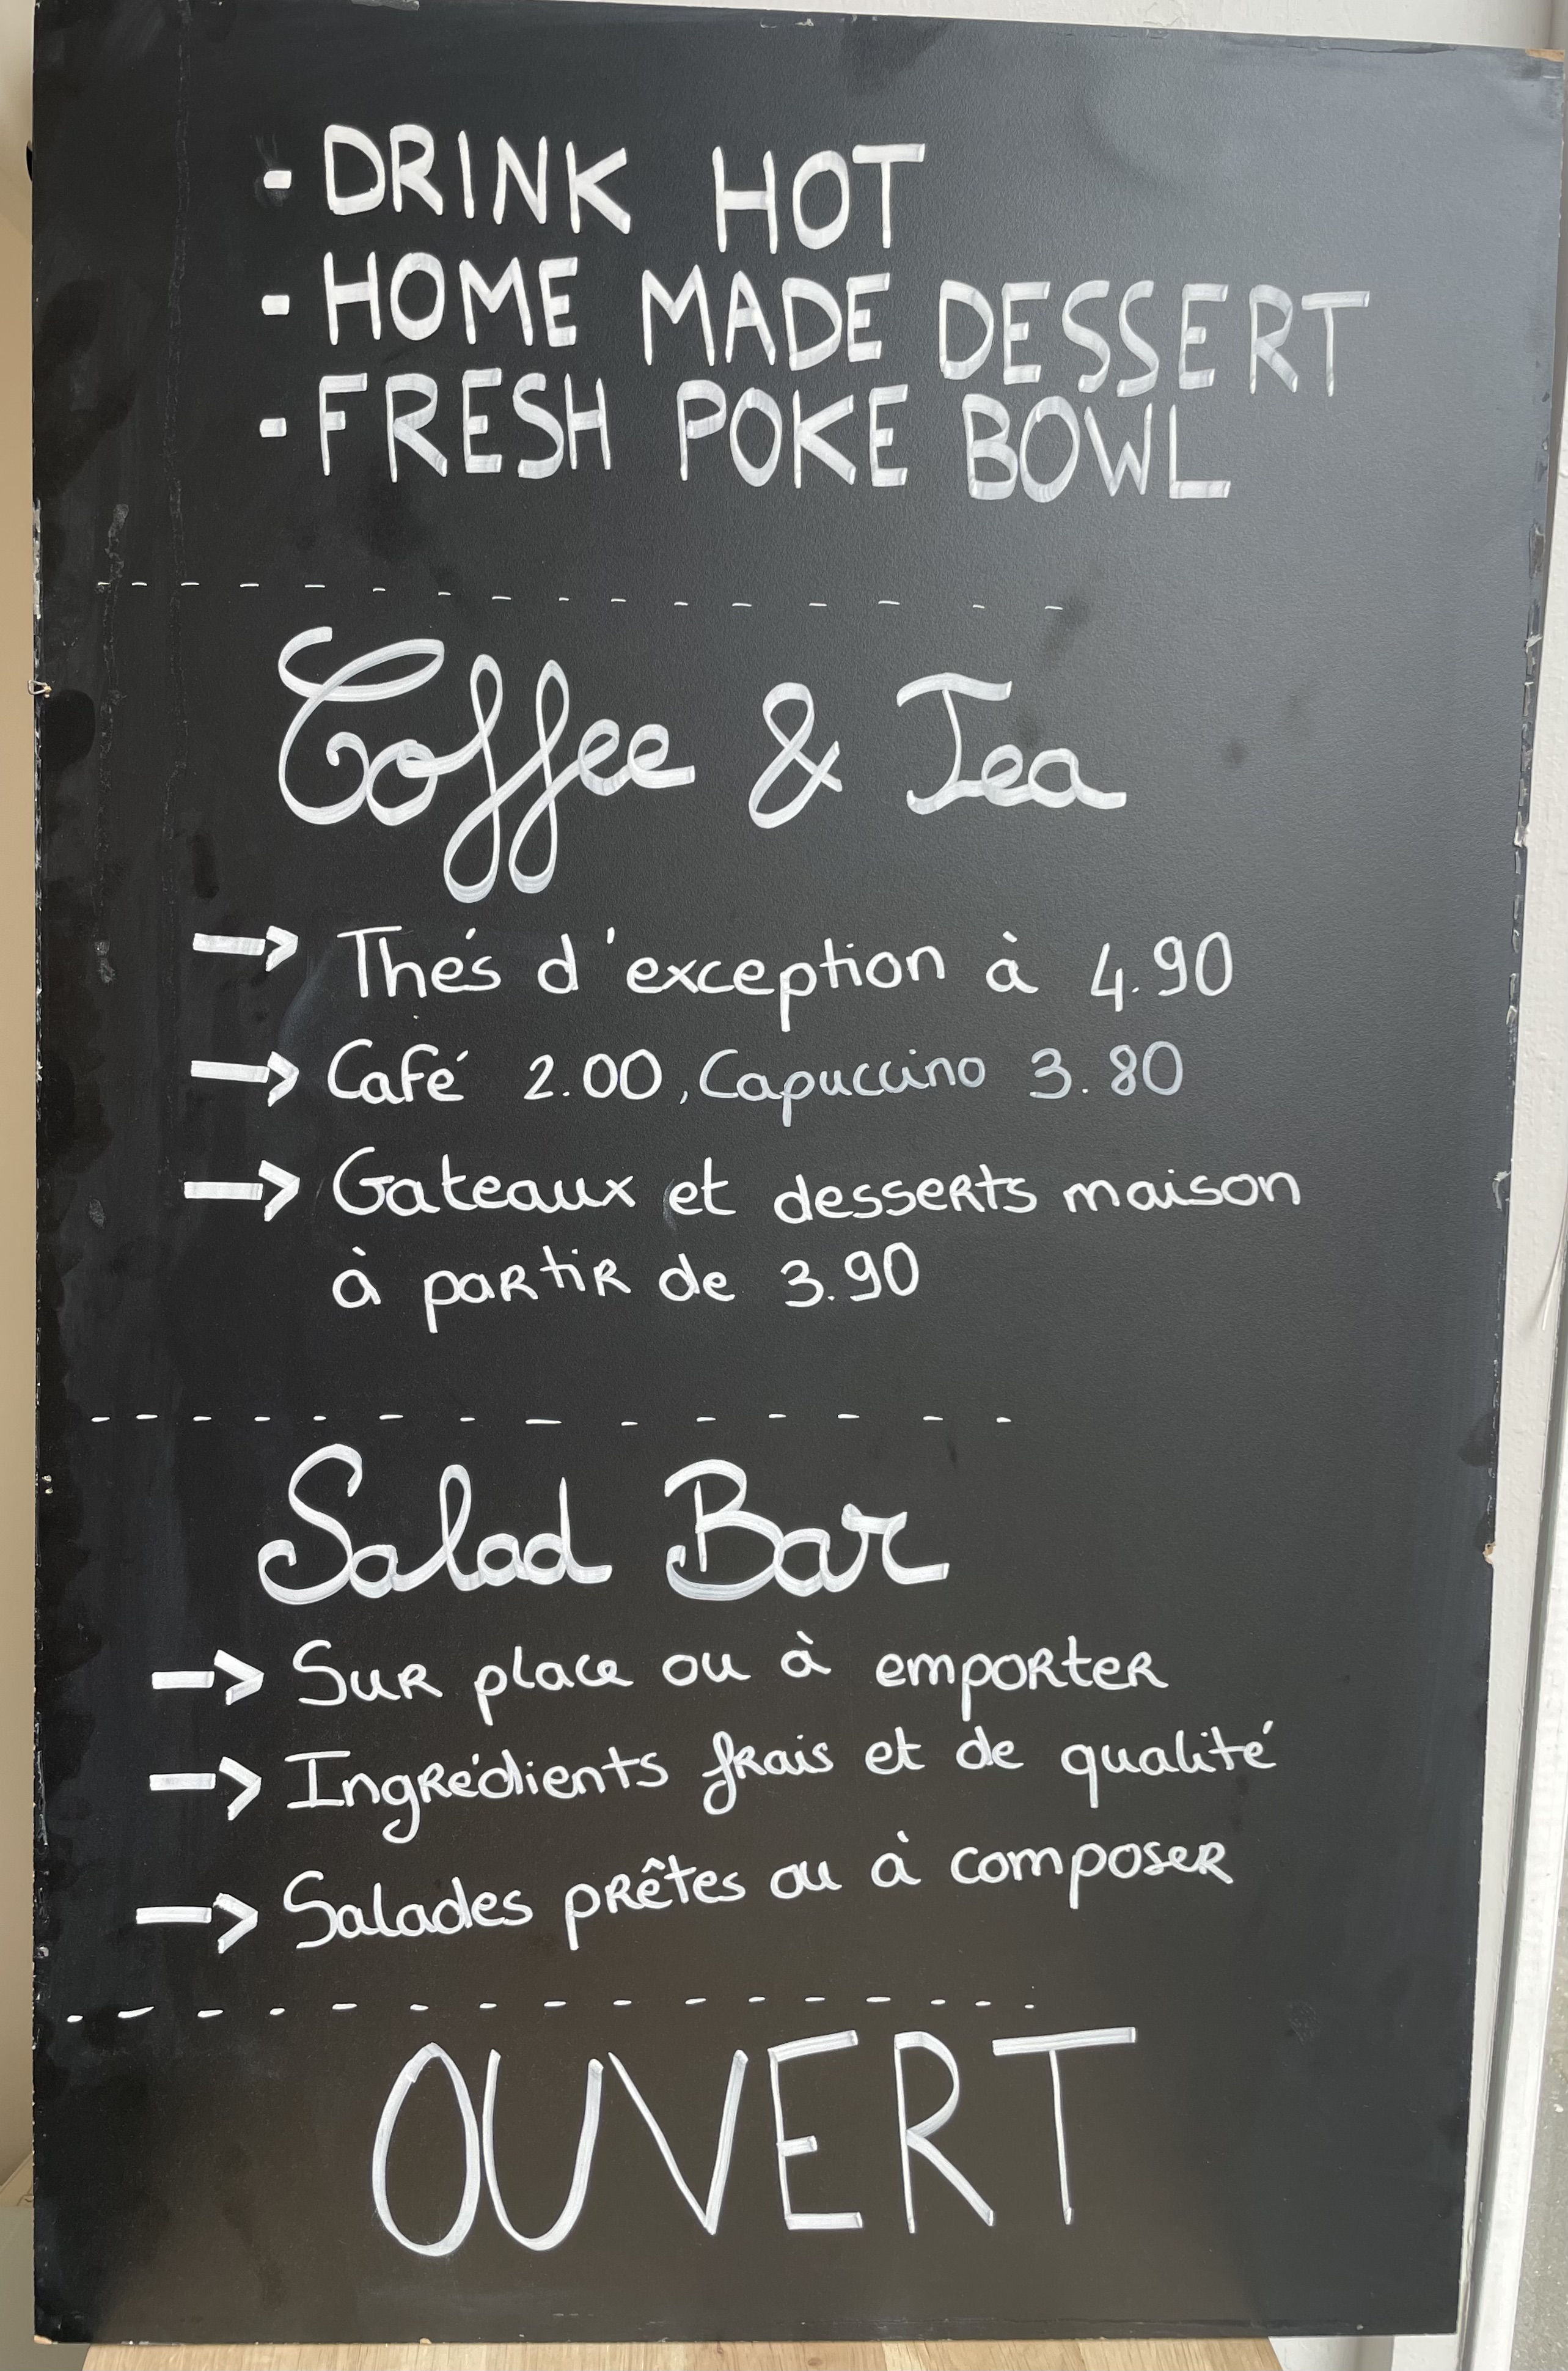 - DRINK HOT
- HOME MADE DESSERT
- FRESH POKE BOWL
Coffee & Tea
→ Thés d'exception à 4.90
→ Café 2.00, Capuccino 3.80
→ Gateaux et desserts maison
à partir de 3.90
Salad Bar
→ Sur place ou à emporter
→ Ingrédients frais et de qualité
→ Salades prêtes ou à composer
OUVERT